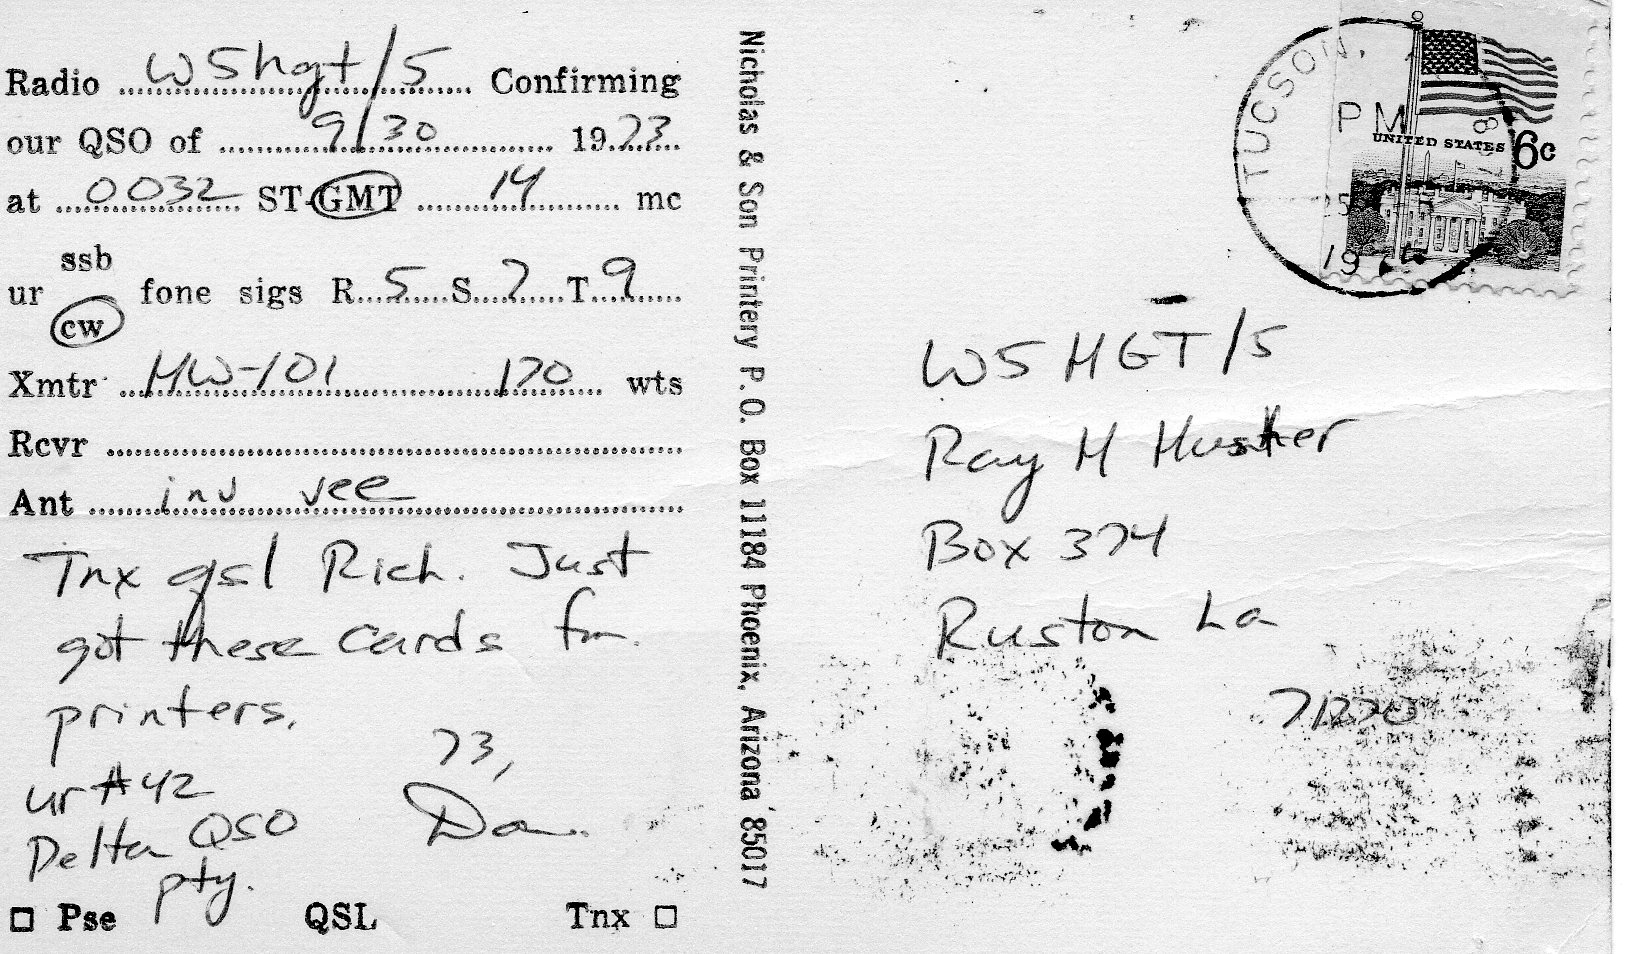 Radio W5hgt/5 Confirming
our QSO of 9/30 1973
at 0032 ST-GMT 14 mc
ssb
ur fone sigs R 5 S 7 T 9
cw
Xmtr HW-101 170 wts
Rcvr
Ant inv vee
Tnx qsl Rich. Just
got these cards fm.
printers.
73,
ur #42
Delta QSO
pty.
Don.
□ Pse QSL Tnx □
Nicholas & Son Printery P.O. Box 11184 Phoenix, Arizona 85017
TUCSON,
PM
19
UNITED STATES 6c
W5HGT/5
Ray H
Box 374
Ruston La
71270